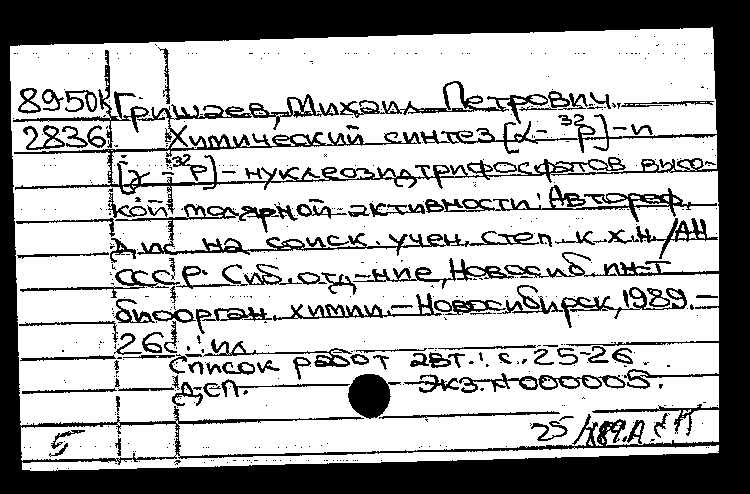 89-50К Гришаев, Михаил Петрович
2836 Химический синтез [α-³²P]-и
[γ-³²P]-нуклеозидтрифосфатов высо-
кой молярной активности: Автореф.
дис. на соиск. учен. степ. к.х.н. /АН
СССР. Сиб. отд-ние, Новосиб. ин-т
биоорган. химии. – Новосибирск, 1989. –
26с.: ил.
Список работ авт.: с. 25-26.
ДСП. Экз. N 000005.
5 25